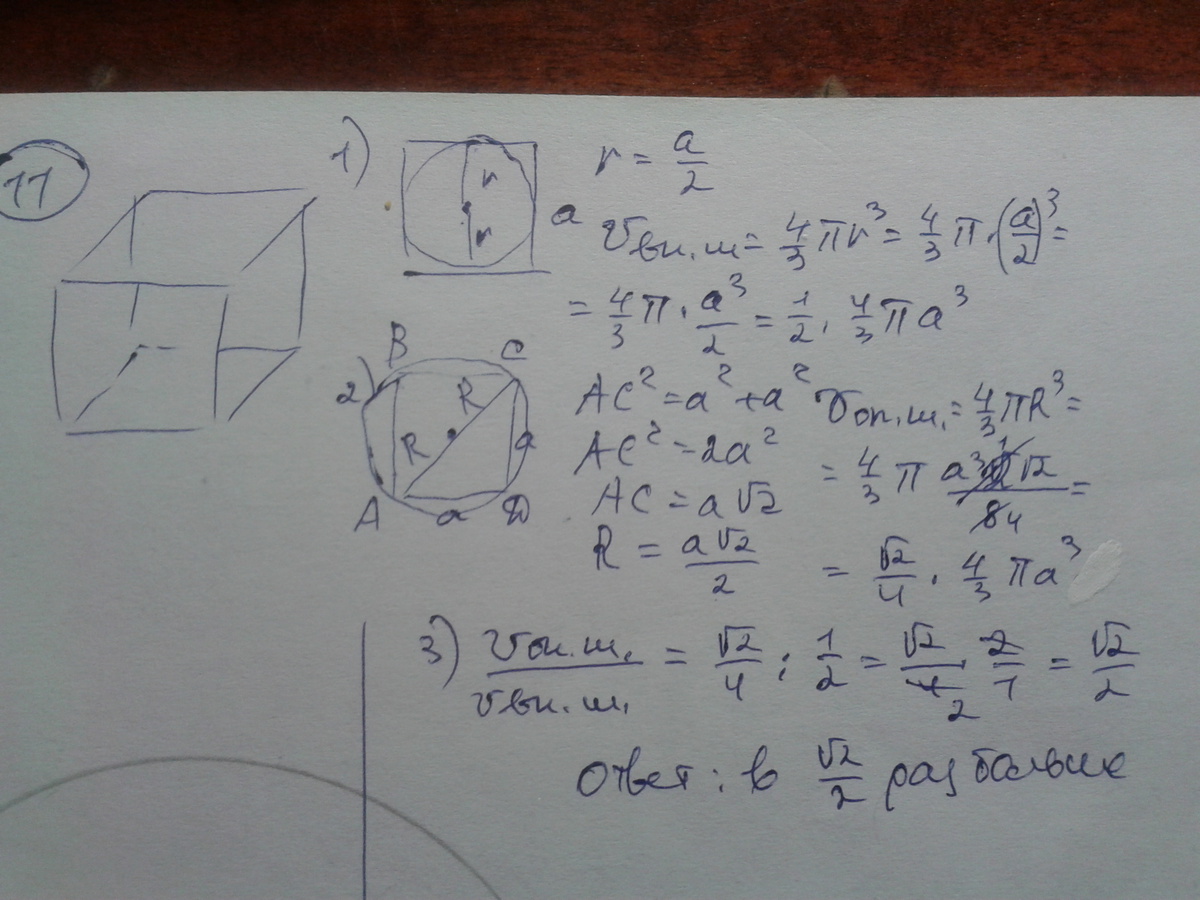 11
1)
r
r
a
r = a/2
Vвп.ш = 4/3 πr³ = 4/3 π·(a/2)³ =
= 4/3 π · a³/2 = 1/2 · 4/3 πa³
2)
B C
R
R
a
A a D
AC² = a² + a²
AC² = 2a²
AC = a√2
R = a√2/2
Vоп.ш. = 4/3 πR³ =
= 4/3 π a³ 2 1 √2/8 4 =
= √2/4 · 4/3 πa³
3) Vоп.ш./Vвп.ш. = √2/4 : 1/2 = √2/4 2 · 2/1 = √2/2
Ответ: в √2/2 раз больше